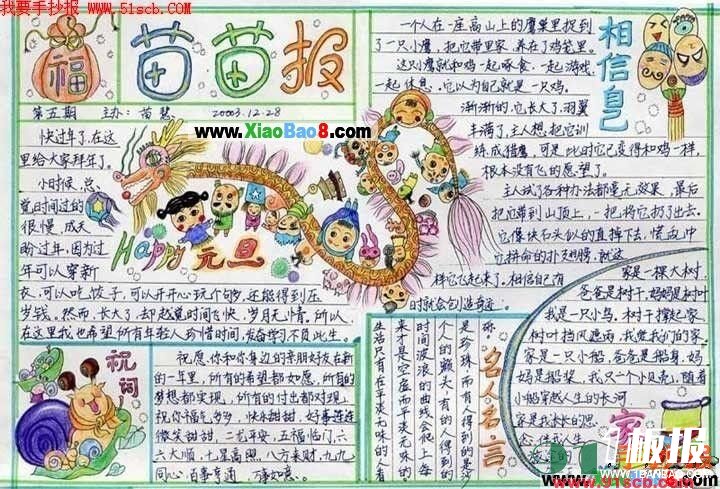 我要手抄报 www.51scb.com
福
苗苗报
第五期 主办：苗慧 2003.12.28
www.XiaoBao8.com
快过年了，在这
里给大家拜年了。
小时候，总
觉时间过的
很慢，成天
盼过年，因为过
年可以穿新
衣，可以吃饺子，可以开开心玩个够，还能得到压
岁钱。然而，长大了，却越觉时间飞快，岁月无情。所以，
在这里我也希望所有年轻人珍惜时间，发奋学习不负此生。
Happy 元旦
相信自己
一个人在一座高山上的鹰巢里捉到
了一只小鹰，把它带里家，养在了鸡笼里。
这只鹰就和鸡一起啄食，一起游戏，
一起休息，它以为自己就是一只鸡。
渐渐的，它长大了，羽翼
丰满了，主人想把它训
练成猎鹰，可是，此时它已变得和鸡一样，
根本没有飞的愿望了。
主人试了各种办法都毫无效果，最后
把它带到山顶上，一把将它扔了出去。
它像块石头似的直掉下去，慌乱中
它拼命的扑支翅膀，就这
样它飞起来了。相信自己有
时就会创造奇迹。
祝词
祝愿你和你身边的亲朋好友在新
的一年里，所有的希望都如愿，所有的
梦想都实现，所有的付出都对现。
祝你福气多多，快乐甜甜，好事连连
微笑甜甜，一花平安，五福临门，六
六大顺，七星高照，八方来财，九九
同心，百事亨通，万事如意。
名人名言
是珍珠，而有人得到的是沙
个人的额头，有的人得到的
时间波浪的曲线会爬上每
来才是空虚而平淡无味的。
生活只有在平淡无味的人看
家
家是一棵大树，
爸爸是树干，妈妈是树枝
我是一只小鸟，树干撑起家
树叶挡风遮雨，我觉我们的家。
家是一只小船，爸爸是船身，妈
妈是船桨，我只一个小贝壳，随着
小船穿越人生的长河
家是我永长的思
念，伴我人生
1板报
www.1PANBAO.com
www.51scb.com